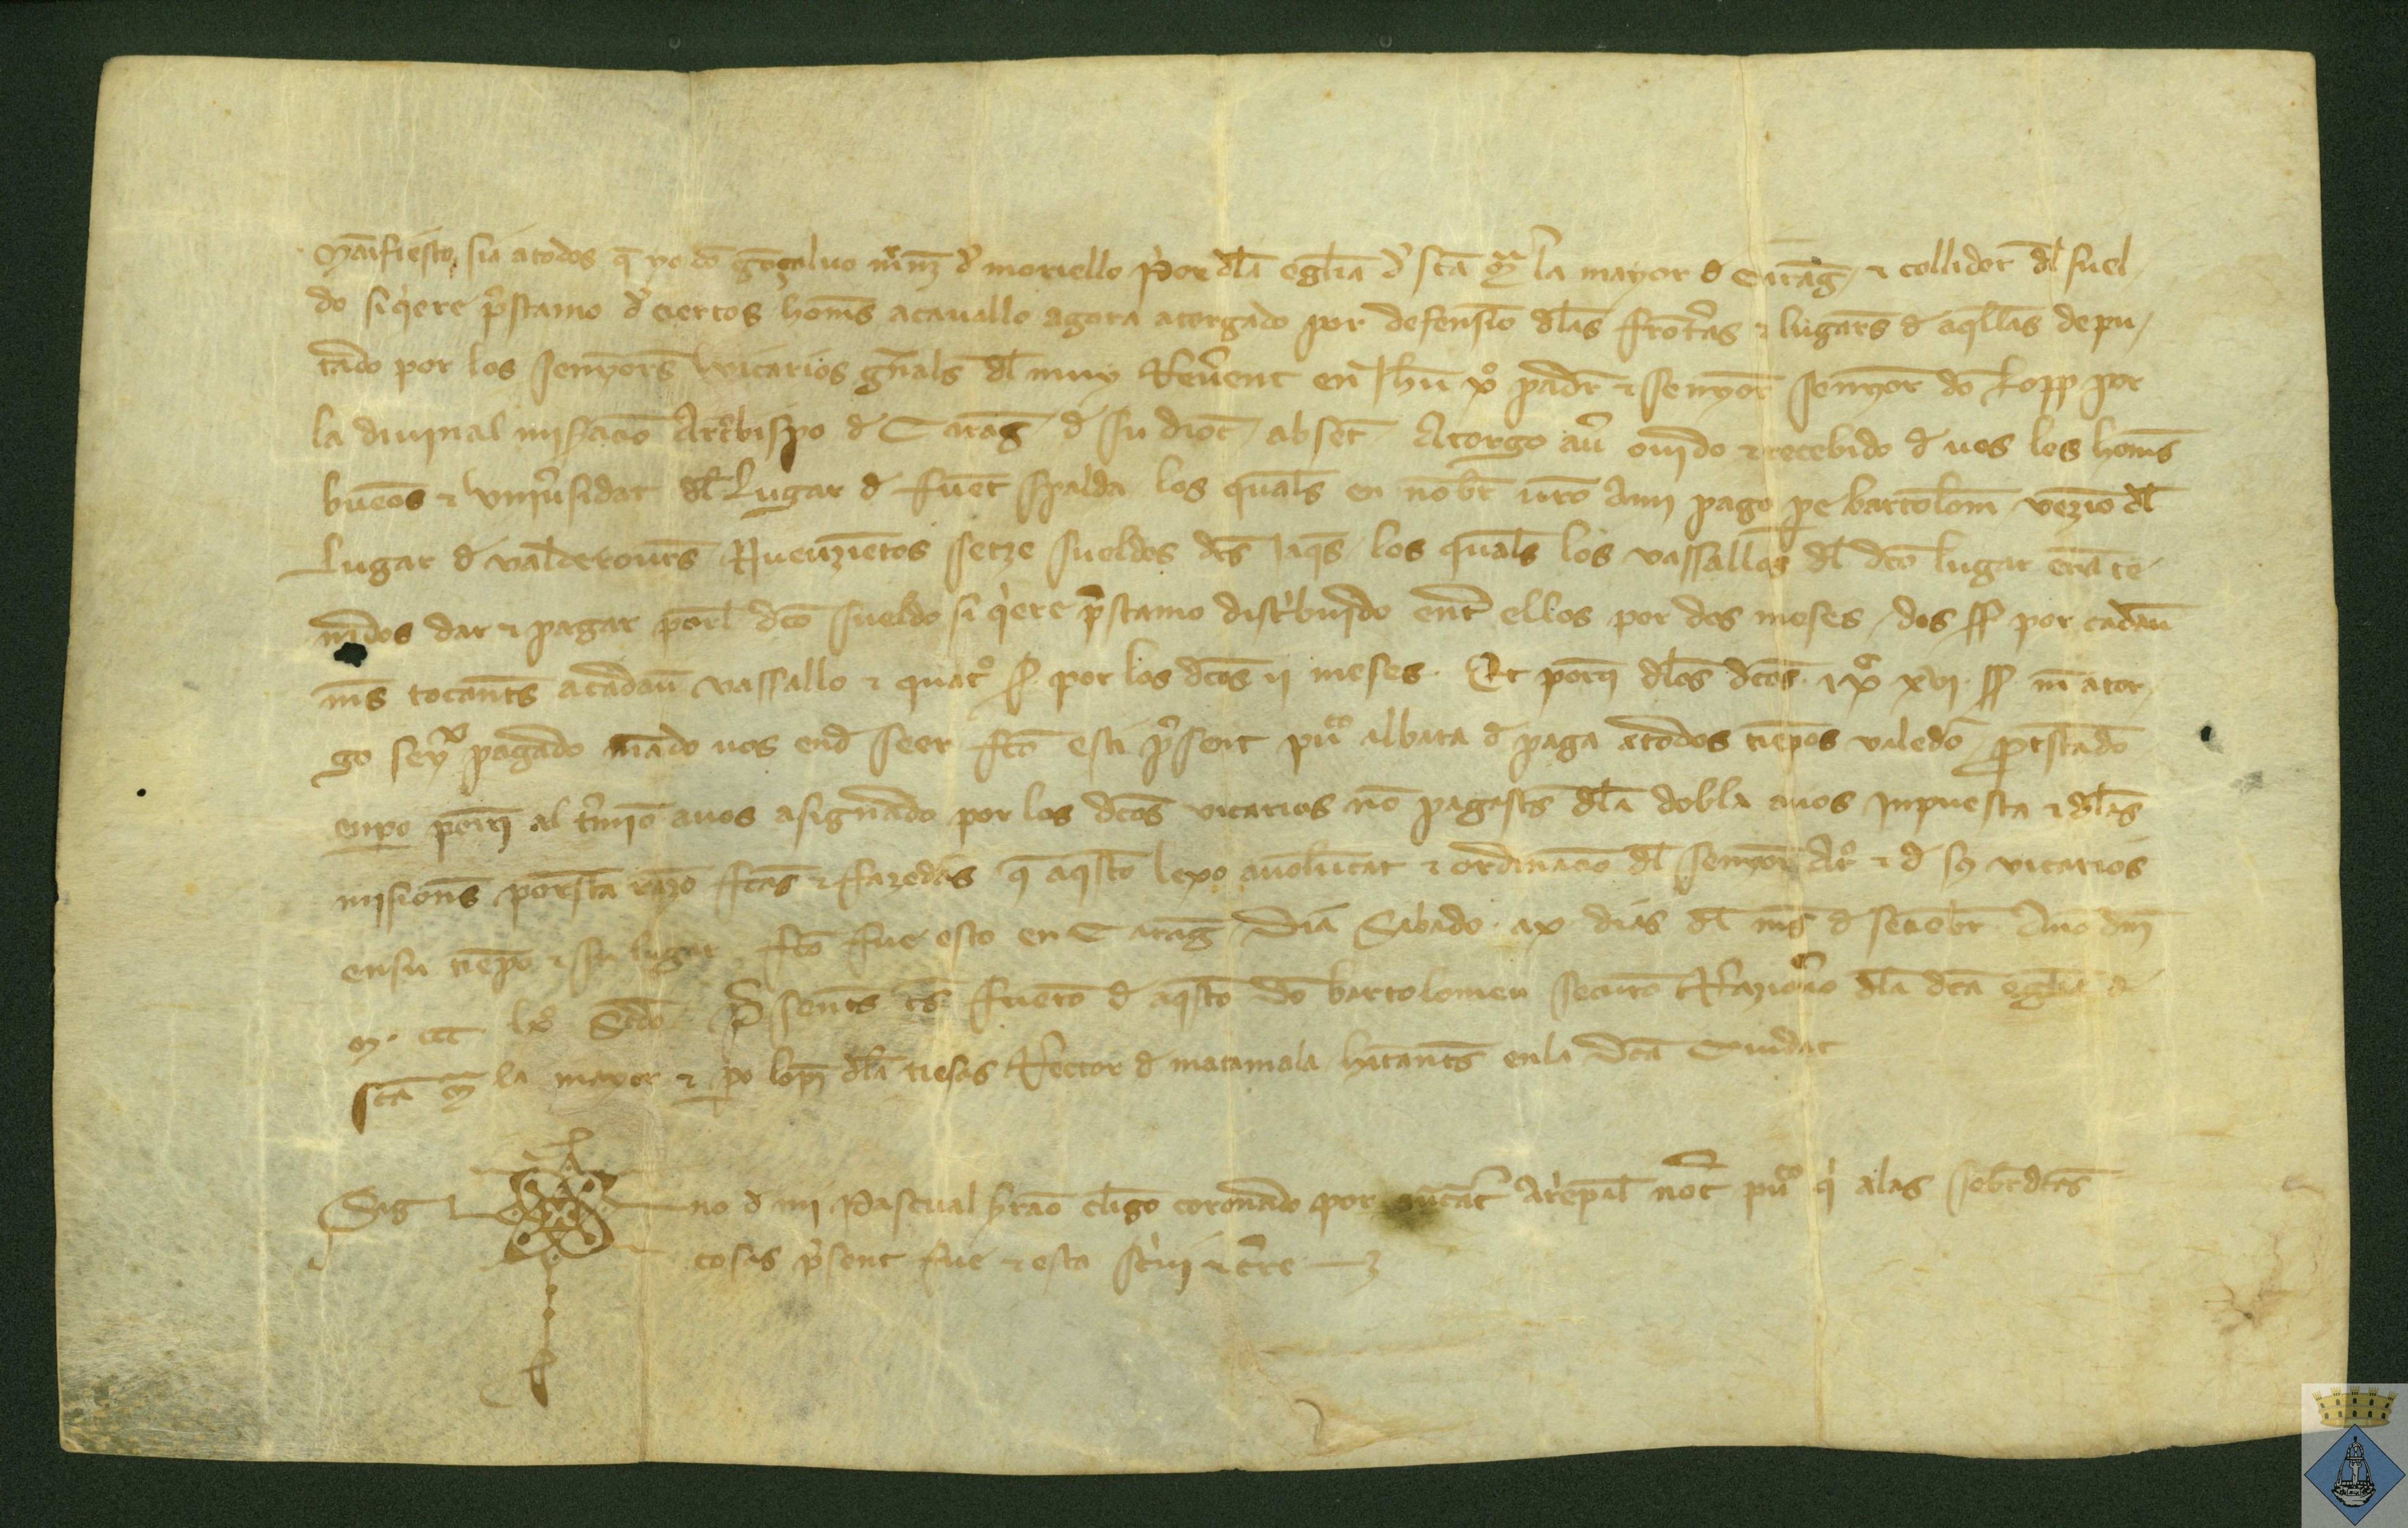 Manifiesto sia a todos q̄ yo dō gōçaluo mr̄nz d' moriello p̀or dl̄a egl̄ia d' sc̄ta mª la mayor d Caraḡ ⁊ collidor dl̄ suel
do siq̀ere p̄stamo d' ciertos hom̄s acauallo agora atorgado por defensiō dl̄as frōt̄as ⁊ lugar̄s d aq̄llas depu
tado por los senyor̄s vicarios gn̄als dl̄ muy Reu̅ent en ih̄u xº padr̄ ⁊ senyor senyor dō Lopp por
la diuinal mis̄acio Arc̄bispo d Caraḡ d su dioc̄ absēt Atorgo au̅ ouido ⁊ recebido d uos los hom̄s
buenos ⁊ vniu̅sidat dl̄ Lugar d fuent spalda los qual̄s en nōbr̄ ur̄o ami pago pe bartolom̄ vezīo dl̄
Lugar d valderour̄s Nueuzientos setze sueldos dr̄s iaq̄s los qual̄s los vassallos dl̄ dc̄o lugar erā te
nidos dar ⁊ pagar porl̄ dc̄o sueldo siq̀ere p̄stamo dist̀buydo ent̄ ellos por dos meses dos ss por cadau̅
mes tocant̄s acadau̅ vassallo ⁊ quat̊ ss por los dc̄os ii meses Et porq̄ dl̄os dc̄os ixᶜ xvi ss m̄ ator
go sey̅ pagado mādo uos end̄ seer fc̄to esti p̄sent pu̅ᶜᵒ albara d paga atodos tiēpos valedo p̄testādo
enpo porq̄ al t̄mīo auos asignado por los dc̄os vicarios nō pagast̄s dl̄a dobla auos inpuesta ⁊ dl̄as
mision̄s porsta razō fc̄tas ⁊ fazedas q̄ aq̄sto lexo auolūtat ⁊ ordinaciō dl̄ senyor Ar̊ ⁊ d sʒ vicarios
ensu tiēpo ⁊ su lugar fc̄to fue esto en Caraḡ Dia Sabado x dias dl̄ mes d setēbr̄ Ano dn̄i
m ccc lxº Sc̄do p̄sent̄s ts̄ fuerō d aq̄sto dō bartolomeu Raziōero dl̄a dc̄a egl̄ia d
sc̄ta mª la mayor ⁊ po lop̄z dl̄a tiesas Rector d matamala hitant̄s enla dc̄a Ciudat
Sig no d mi Pascual cl̄igo coronado por auc̄tat Ar̀epal̄ not̄ pu̅ᶜᵒ q̀ alas sobr̄dc̄as
cosas p̄sent fue ⁊ esta sc̀ui ⁊ c̄re